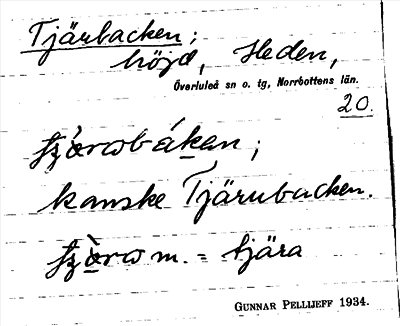 Tjärbacken;
höjd, Heden,
Överluleå sn o. tg, Norrbottens län.
20.
;
kanske Tjärubacken.
m. = tjära
GUNNAR PELLIJEFF 1934.